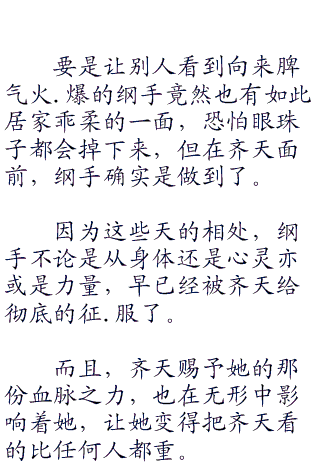 要是让别人看到向来脾
气火.爆的纲手竟然也有如此
居家乖柔的一面，恐怕眼珠
子都会掉下来，但在齐天面
前，纲手确实是做到了。
因为这些天的相处，纲
手不论是从身体还是心灵亦
或是力量，早已经被齐天给
彻底的征.服了。
而且，齐天赐予她的那
份血脉之力，也在无形中影
响着她，让她变得把齐天看
的比任何人都重。